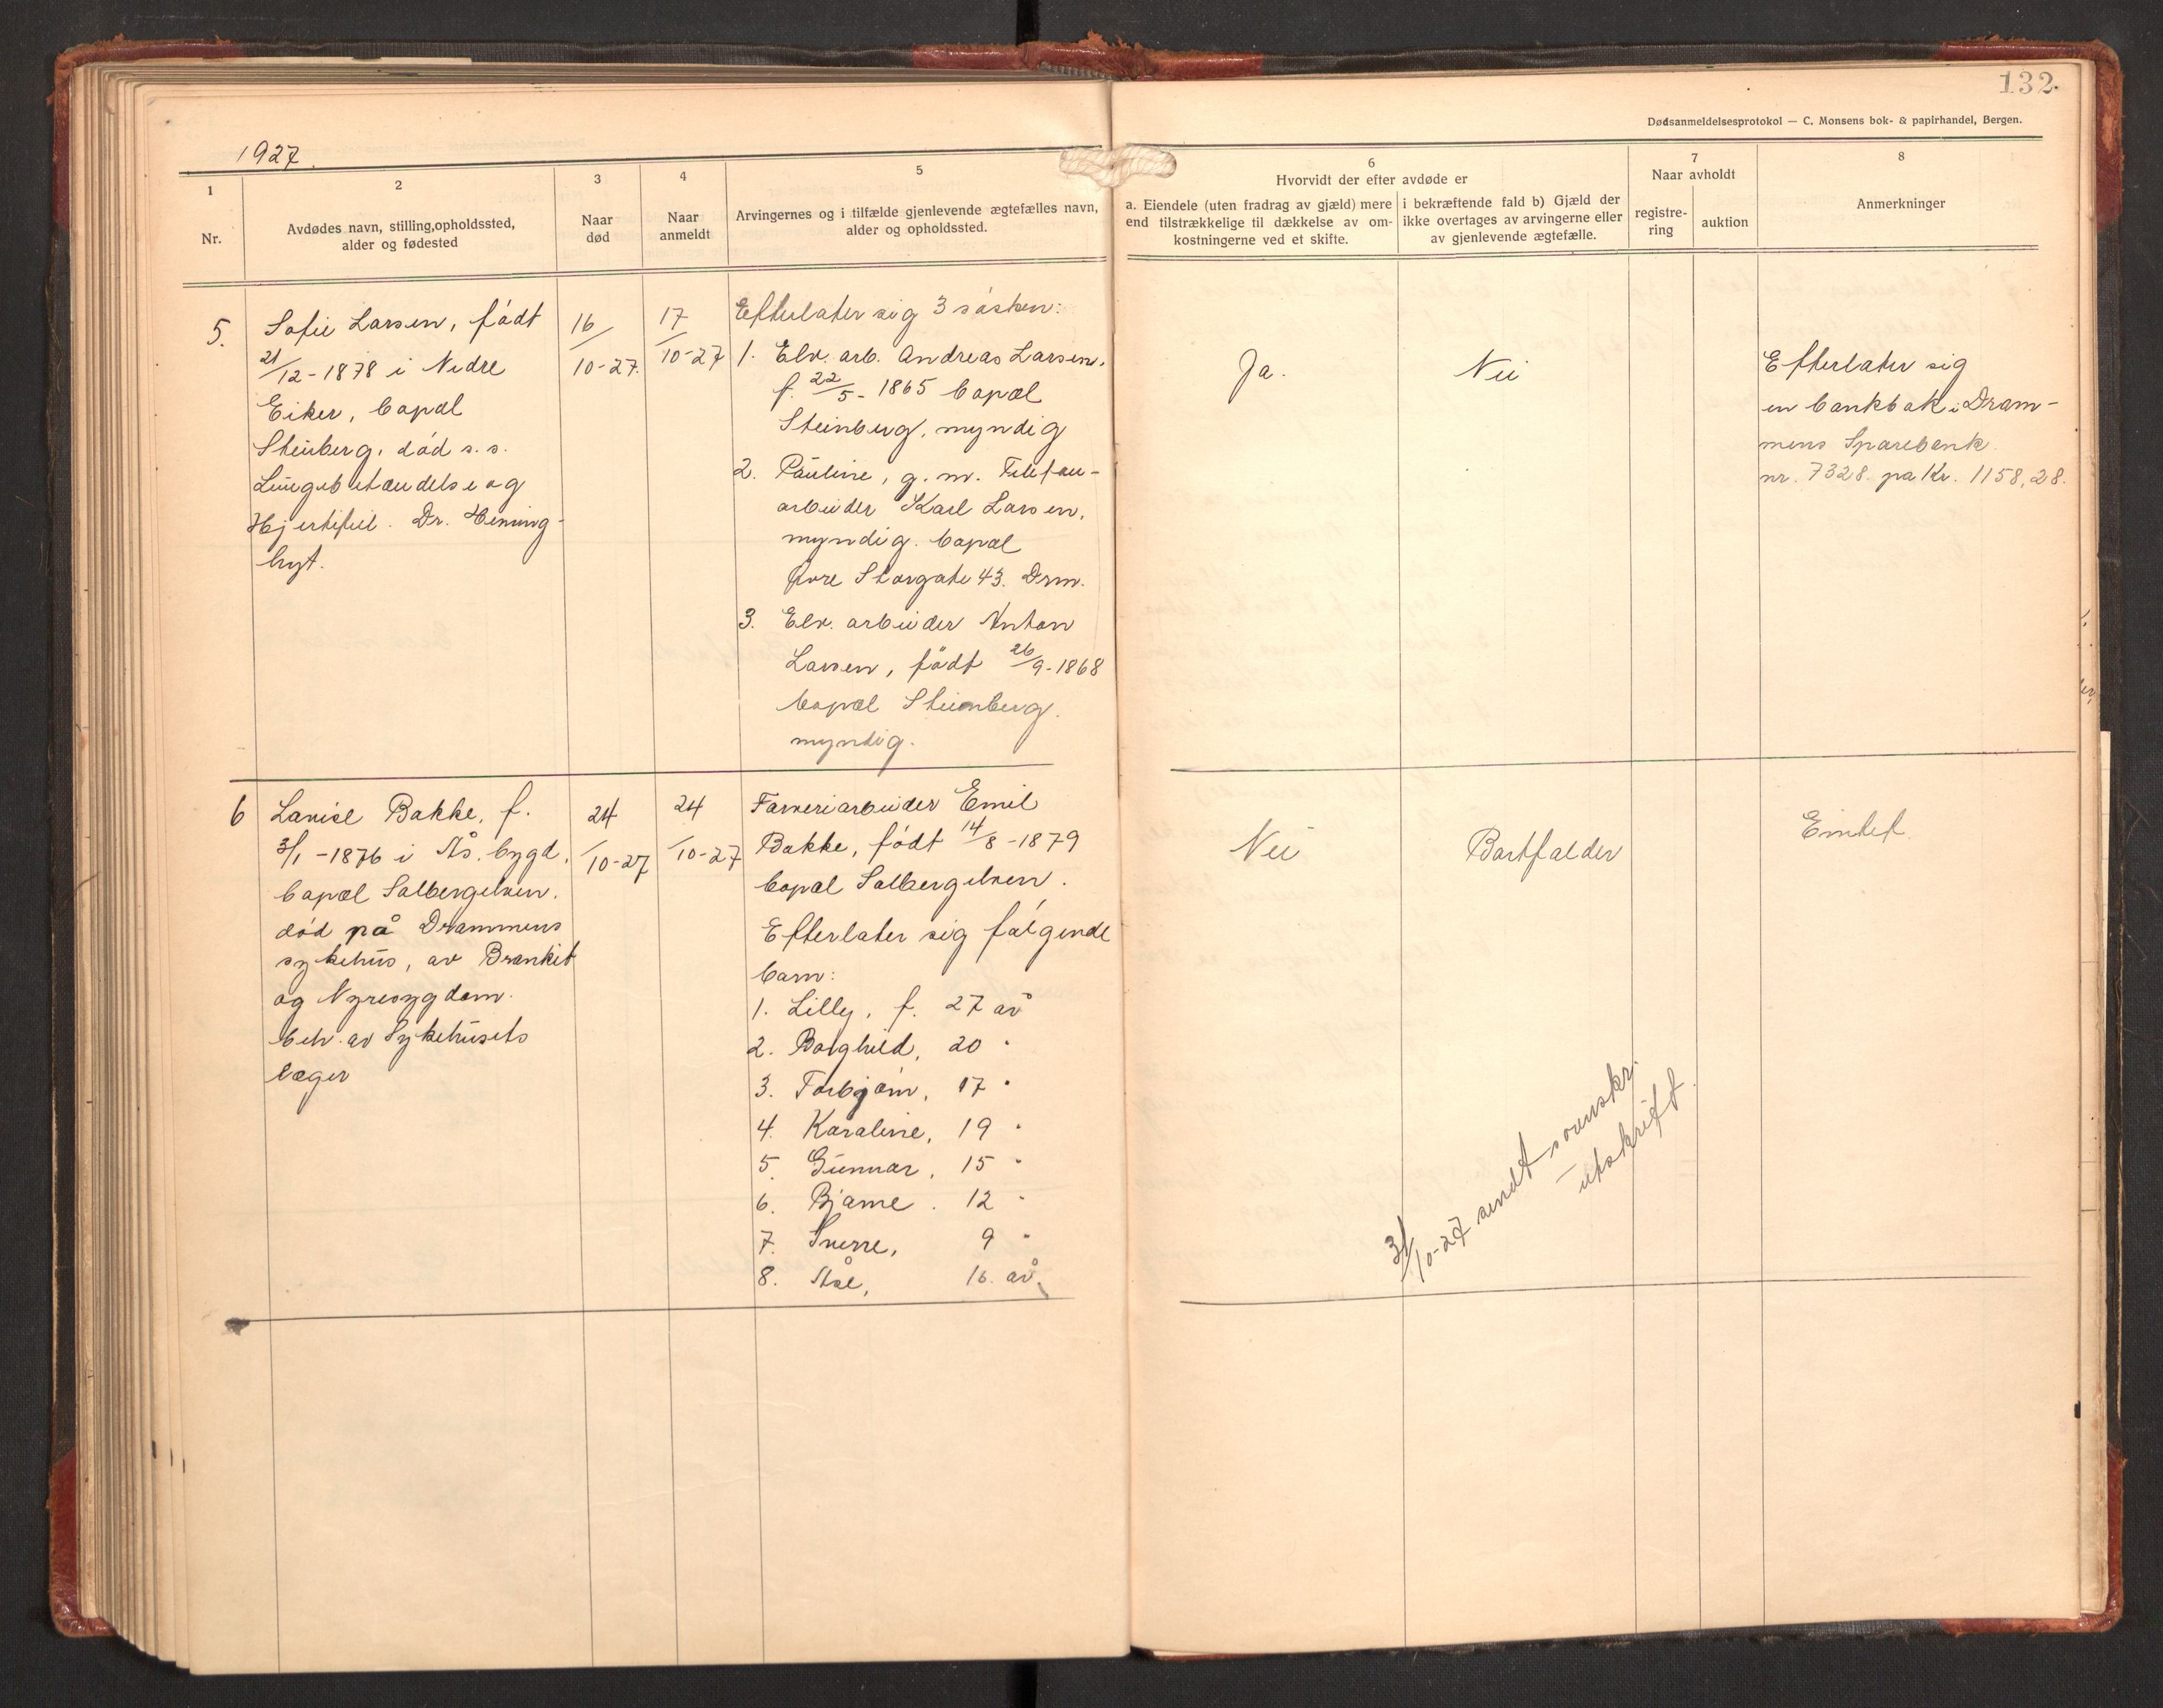 132.
Dødsanmeldelsesprotokol — C. Monsens bok- & papirhandel, Bergen.
1927.
1
Nr.
2
Avdødes navn, stilling, opholdssted,
alder og fødested
3
Naar
død
4
Naar
anmeldt
5
Arvingernes og i tilfælde gjenlevende ægtefælles navn,
alder og opholdssted.
6
Hvorvidt der efter avdøde er
a. Eiendele (uten fradrag av gjæld) mere
end tilstrækkelige til dækkelse av om-
kostningerne ved et skifte.
i bekræftende fald b) Gjæld der
ikke overtages av arvingerne eller
av gjenlevende ægtefælle.
7
Naar avholdt
registre-
ring
auktion
8
Anmerkninger
5.
Sofie Larsen, født
21/12-1878 i Nedre
Eiker, bopæl
Steinberg, død s. s.
Lungebetændelse og
Hjertefeil. Dr. Henning-
16/
10-27.
17/
10-27
Efterlater sig 3 søsken:
1. Elv. arb. Andreas Larsen,
f. 22/5-1865 bopæl
Steinberg, myndig
2. Pauline, g. m. Telefon-
arbeider Karl Larsen,
myndig. bopæl
Øvre Storgate 43. Drm.
3. Elv. arbeider Anton
Larsen, født 26/9-1868
bopæl Steinberg.
myndig.
Ja.
Nei
Efterlater sig
en bankbok i Dram-
mens Sparebank
nr. 7328. på Kr. 1158,28.
6
Lovise Bakke, f.
3/1-1876 i Ås. bygd.
bopæl Solbergelven.
død på Drammens
sykehus, av Bronkit
og Nyresygdom.
beh. av Sykehusets
læger
24
/10-27
24
/10-27
Farveriarbeider Emil
Bakke, født 14/8-1879
bopæl Solbergelven.
Efterlater sig følgende
barn:
1. Lilly, f. 27 år
2. Borghild, 20 "
3. Torbjørn, 17 "
4. Karoline, 19 "
5. Gunnar, 15 "
6. Bjarne. 12 "
7. Sverre, 9 "
8. Ståle, 16. år.
Nei
Bortfalder
Eintet.
31/10-27 sendt sorenskr.
utskrift.